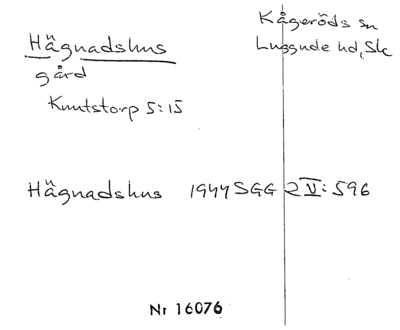 Hägnadshus
gård
Knutstorp 5:15
Kågeröds sn
Luggude hd, Sk
Hägnadshus 1944 SGG 2 V: 596
Nr 16076